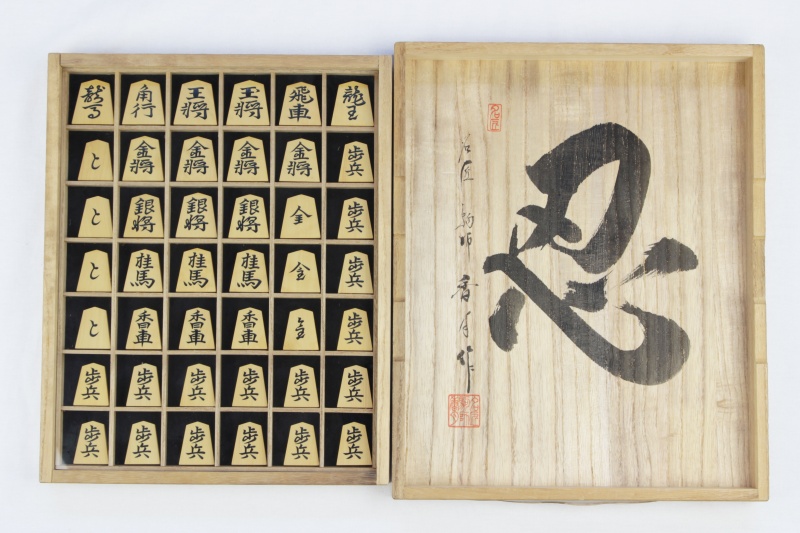 龍馬 角行 王将 玉将 飛車 龍王
と 金将 金将 金将 金将 歩兵
と 銀将 銀将 銀将 全 歩兵
と 桂馬 桂馬 桂馬 金 歩兵
と 香車 香車 香車 歩兵
歩兵 歩兵 歩兵 歩兵 歩兵 歩兵
歩兵 歩兵 歩兵 歩兵 歩兵 歩兵
忍
名匠 駒師 香月作
名匠